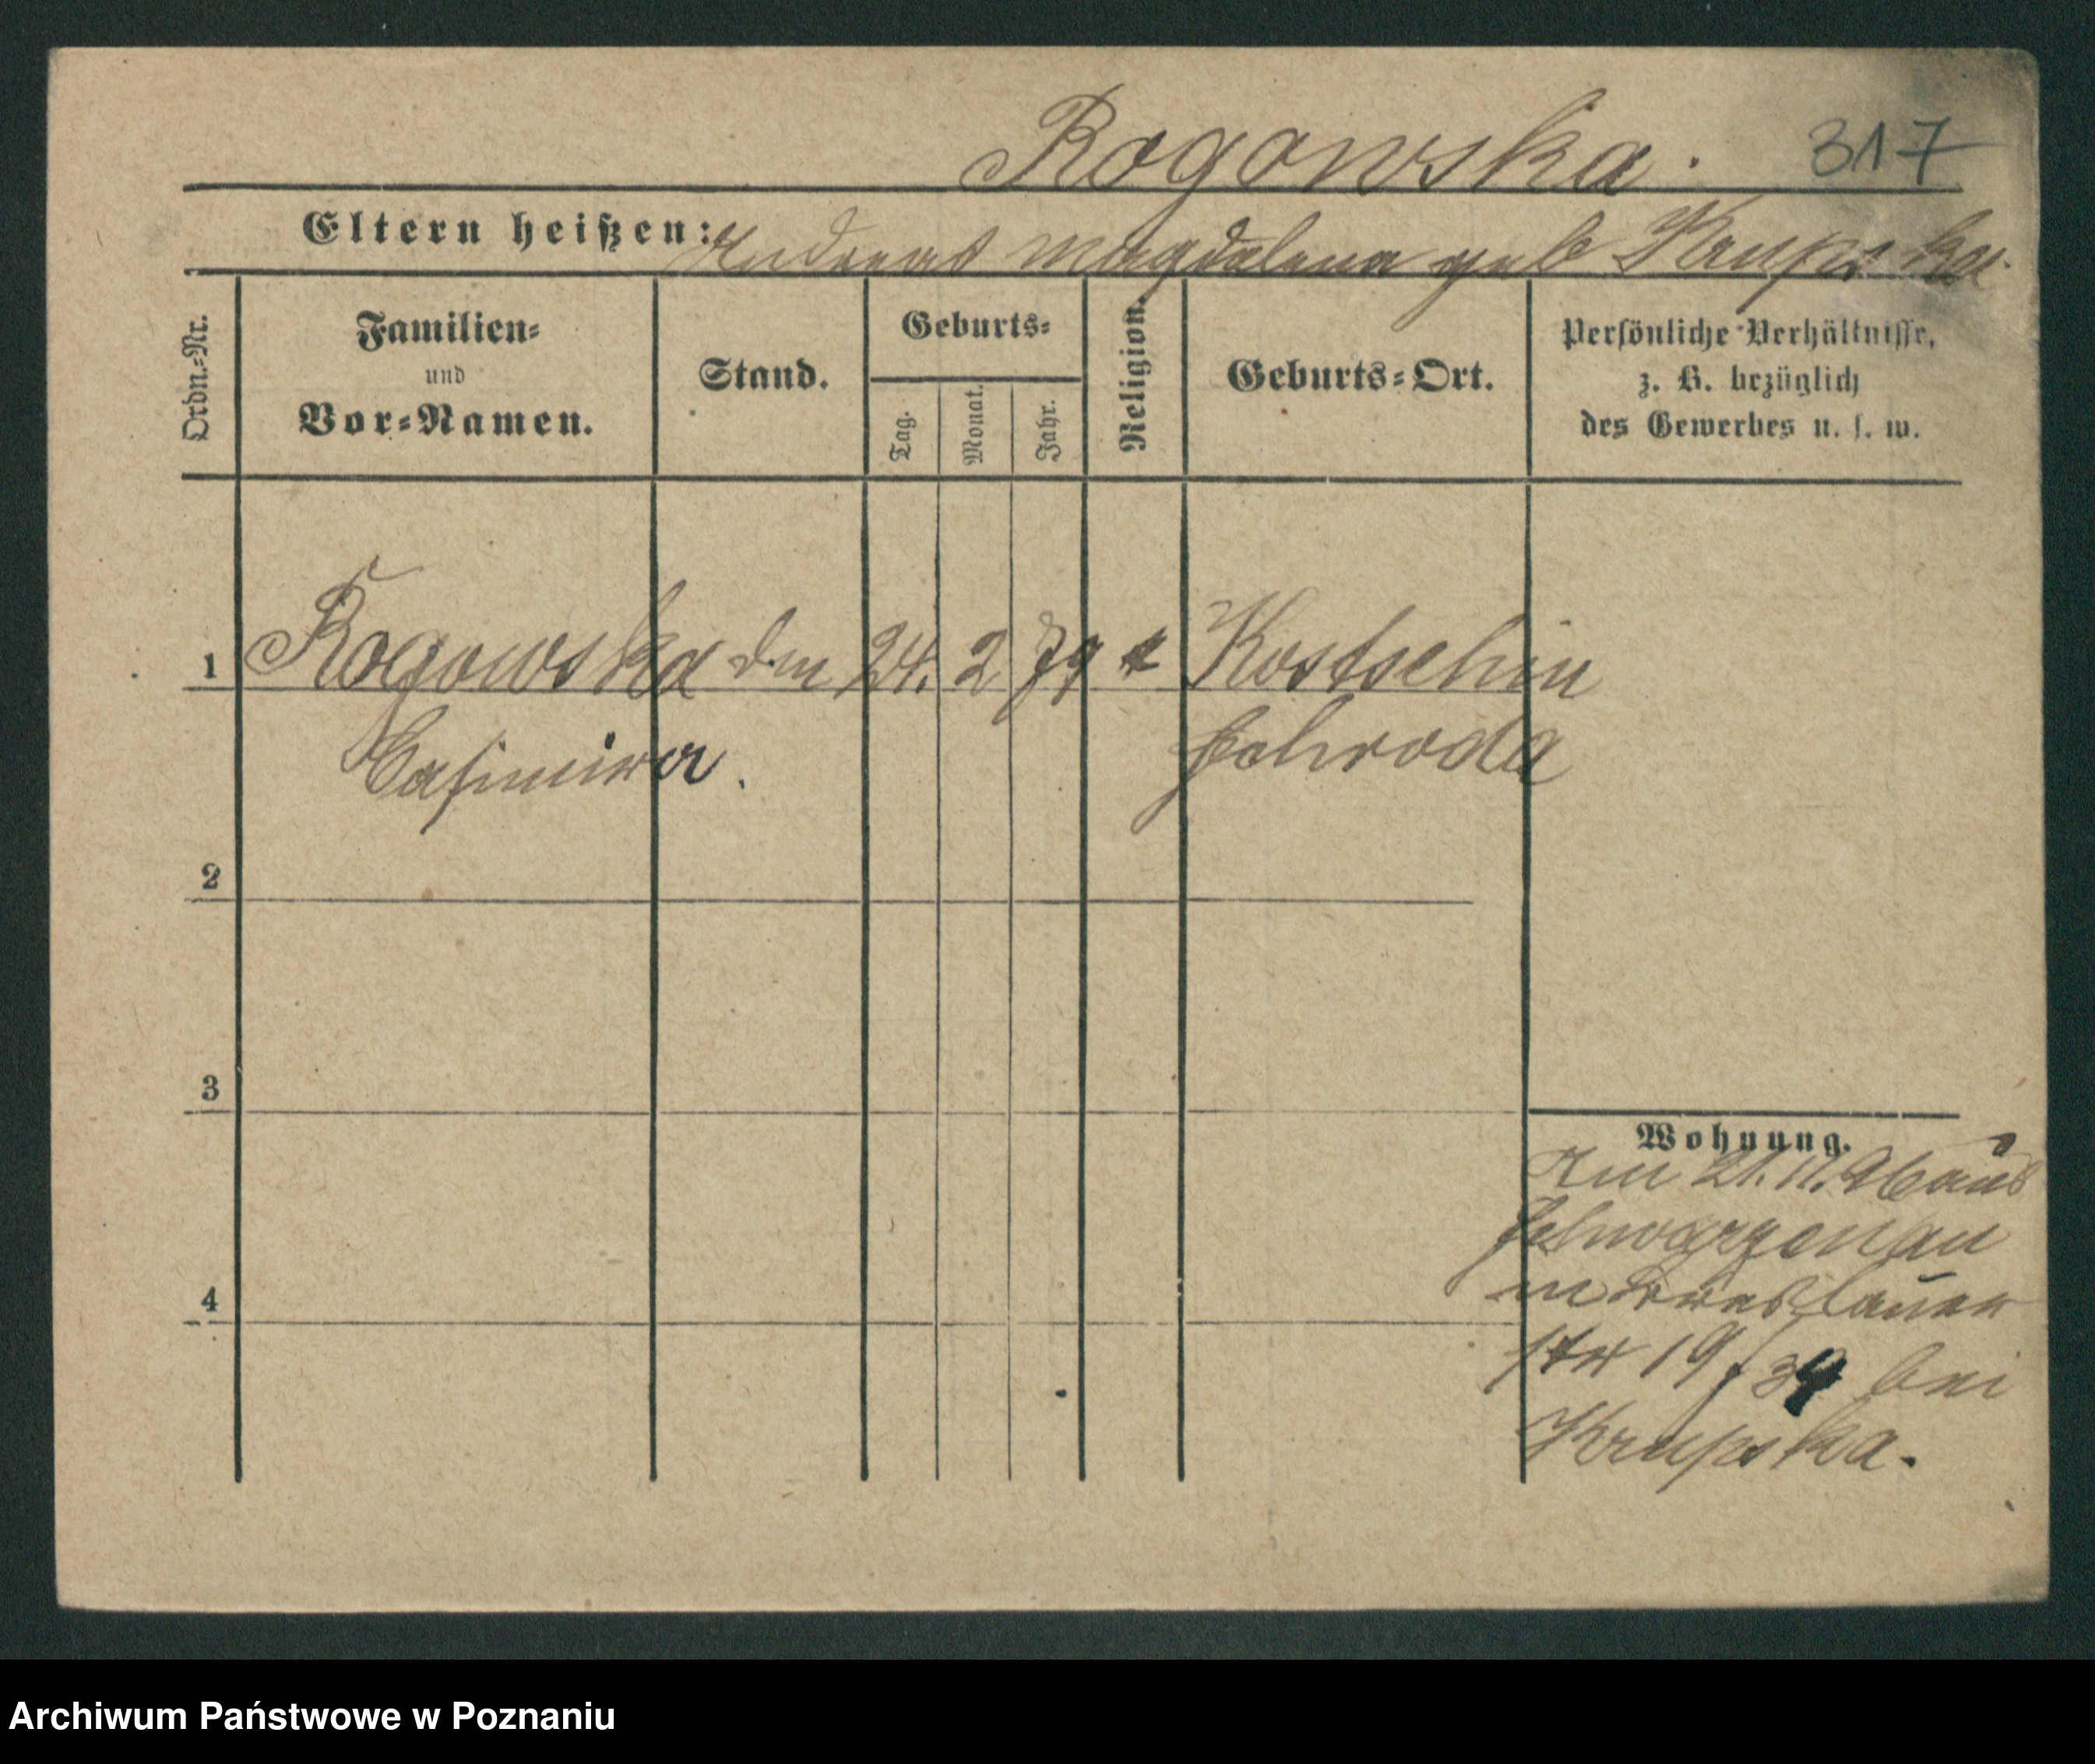 Rogowska. 317
Eltern heißen: Andreas Magdalena geb Krupska.
Ordn.=Nr.
Familien=
und
Vor=Namen.
Stand.
Geburts=
Tag.
Monat.
Jahr.
Religion.
Geburts=Ort.
Persönliche Verhältnisse,
z. B. bezüglich
des Gewerbes u. s. w.
1 Rogowska den 24. 2 79 k Kostschin
Casimira. Schroda
2
3
4
Wohnung.
Am 21.11.96 aus
in Breslauer
str 19 / 34 bei
Krupska.
Archiwum Państwowe w Poznaniu